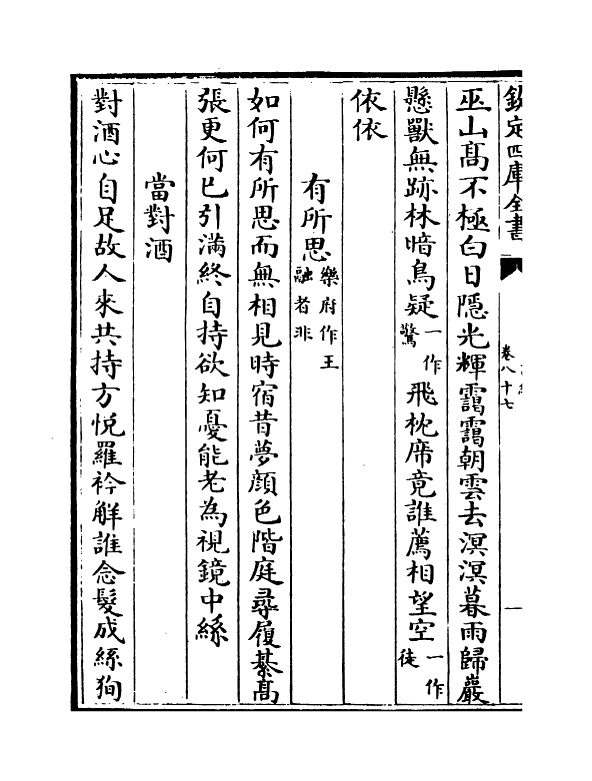 欽定四庫全書
卷八十七
一
巫山髙不極白日隱光輝靄靄朝雲去溟溟暮雨歸巖
懸獸無跡林暗鳥疑一作驚飛枕席竟誰薦相望空一作徒
依依
有所思樂府作王融者非
如何有所思而無相見時宿昔夢顔色階庭尋履綦髙
張更何已引滿終自持欲知憂能老為視鏡中絲
當對酒
對酒心自足故人來共持方悅羅衿解誰念髮成絲狥